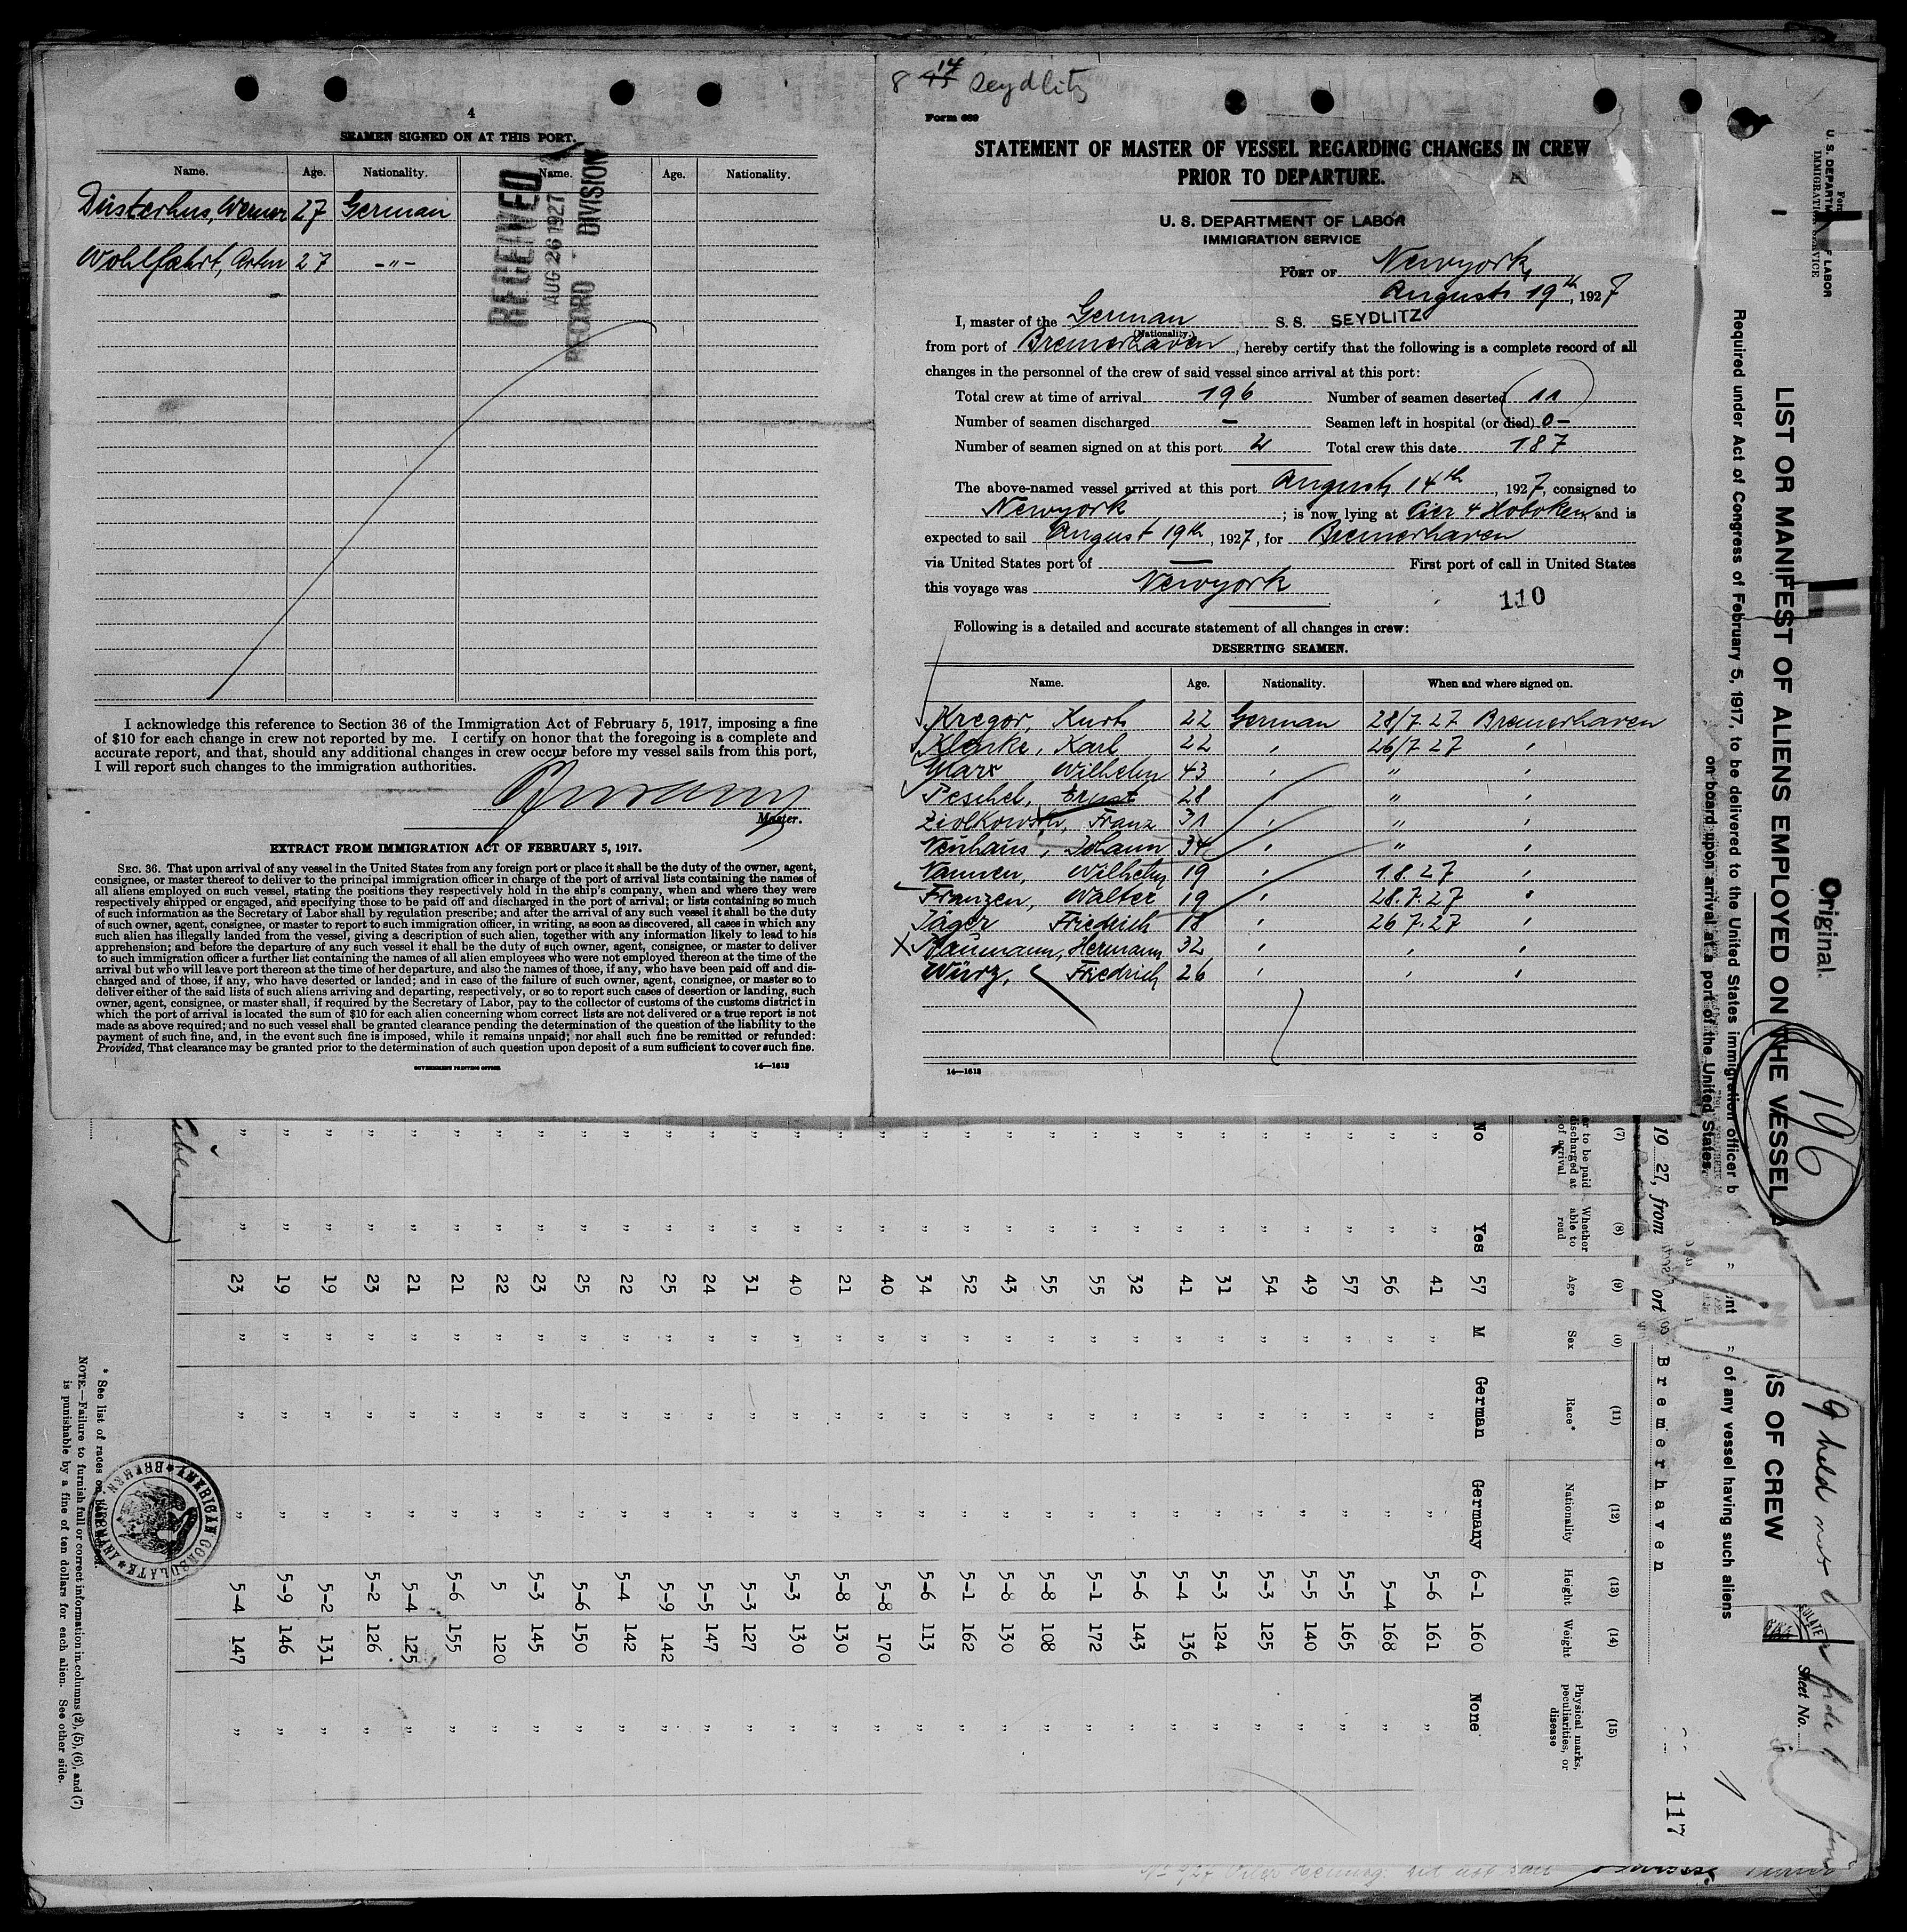 4
SEAMEN SIGNED ON AT THIS PORT.
Name. Age. Nationality. Name. Age. Nationality.
Düsterhus, Werner 27 German
Wohlfahrt, 27 -"-
RECEIVED
AUG 26 1927
RECORD DIVISION
I acknowledge this reference to Section 36 of the Immigration Act of February 5, 1917, imposing a fine
of $10 for each change in crew not reported by me. I certify on honor that the foregoing is a complete and
accurate report, and that, should any additional changes in crew occur before my vessel sails from this port,
I will report such changes to the immigration authorities.
Master.
EXTRACT FROM IMMIGRATION ACT OF FEBRUARY 5, 1917.
SEC. 36. That upon arrival of any vessel in the United States from any foreign port or place it shall be the duty of the owner, agent,
consignee, or master thereof to deliver to the principal immigration officer in charge of the port of arrival lists containing the names of
all aliens employed on such vessel, stating the positions they respectively hold in the ship's company, when and where they were
respectively shipped or engaged, and specifying those to be paid off and discharged in the port of arrival; or lists containing so much
of such information as the Secretary of Labor shall by regulation prescribe; and after the arrival of any such vessel it shall be the duty
of such owner, agent, consignee, or master to report to such immigration officer, in writing, as soon as discovered, all cases in which any
such alien has illegally landed from the vessel, giving a description of such alien, together with any information likely to lead to his
apprehension; and before the departure of any such vessel it shall be the duty of such owner, agent, consignee, or master to deliver
to such immigration officer a further list containing the names of all alien employees who were not employed thereon at the time of the
arrival but who will leave port thereon at the time of her departure, and also the names of those, if any, who have been paid off and dis-
charged and of those, if any, who have deserted or landed; and in case of the failure of such owner, agent, consignee, or master so to
deliver either of the said lists of such aliens arriving and departing, respectively, or so to report such cases of desertion or landing, such
owner, agent, consignee, or master shall, if required by the Secretary of Labor, pay to the collector of customs of the customs district in
which the port of arrival is located the sum of $10 for each alien concerning whom correct lists are not delivered or a true report is not
made as above required; and no such vessel shall be granted clearance pending the determination of the question of the liability to the
payment of such fine, and, in the event such fine is imposed, while it remains unpaid; nor shall such fine be remitted or refunded:
Provided, That clearance may be granted prior to the determination of such question upon deposit of a sum sufficient to cover such fine.
GOVERNMENT PRINTING OFFICE 14—1613
8 14 Seydlitz
Form 689
STATEMENT OF MASTER OF VESSEL REGARDING CHANGES IN CREW
PRIOR TO DEPARTURE.
U. S. DEPARTMENT OF LABOR
IMMIGRATION SERVICE
PORT OF Newyork,
August 19th, 1927
I, master of the German S. S. SEYDLITZ
(Nationality.)
from port of Bremerhaven, hereby certify that the following is a complete record of all
changes in the personnel of the crew of said vessel since arrival at this port:
Total crew at time of arrival 196 Number of seamen deserted 11
Number of seamen discharged — Seamen left in hospital (or died) 0 —
Number of seamen signed on at this port 2 Total crew this date 187
The above-named vessel arrived at this port August 14th, 1927, consigned to
Newyork; is now lying at Pier 4 Hoboken, and is
expected to sail August 19th, 1927, for Bremerhaven
via United States port of — First port of call in United States
this voyage was Newyork
110
Following is a detailed and accurate statement of all changes in crew:
DESERTING SEAMEN.
Name. Age. Nationality. When and where signed on.
Kregor, Kurt 22 German 28/7.27 Bremerhaven
Klenke, Karl 22 " 26/7 27 "
Marx Wilhelm 43 " " "
Peschel, Ernst 28 " "
Ziolkowski, Franz 31 " " "
Neuhaus, Johann 34 " " "
Nannen, Wilhelm 19 " 1.8.27 "
Franzen, Walter 19 " 28.7.27 "
Jäger Friedrich 18 " 26 7.27 "
X Naumann, Hermann 32 " " "
Würz, Friedrich 26 " " "
14—1613
U. S. DEPARTM F LABOR
IMMIGRATION SERVICE
Original.
LIST OR MANIFEST OF ALIENS EMPLOYED ON THE VESSEL A
S OF CREW
Required under Act of Congress of February 5, 1917, to be delivered to the United States immigration officer b
of any vessel having such aliens
on board upon arrival at a port of the United States
196
19 27, from
ort
Bremerhaven
Sheet No.
117
(7) (8) (9) (0) (11) (12) (13) (14) (15)
discharged at of arrival Whether able to read Age Sex Race* Nationality Height Weight Physical marks, peculiarities, or disease
No Yes 57 M German Germany 6-1 160 None
" " 41 " " " 5-6 161 "
" " 56 " " " 5-4 168 "
" " 57 " " " 5-5 165 "
" " 49 " " " 5-5 140 "
" " 54 " " " 5-3 125 "
" " 31 " " " 5-3 124 "
" " 41 " " " 5-4 136 "
" " 32 " " " 5-6 143 "
" " 55 " " " 5-1 172 "
" " 55 " " " 5-8 108 "
" " 43 " " " 5-8 130 "
" " 52 " " " 5-1 162 "
" " 34 " " " 5-6 113 "
" " 40 " " " 5-8 170 "
" " 21 " " " 5-8 130 "
" " 40 " " " 5-3 130 "
" " 31 " " " 5-3 127 "
" " 24 " " " 5-5 147 "
" " 25 " " " 5-9 142 "
" " 22 " " " 5-4 142 "
" " 25 " " " 5-6 150 "
" " 23 " " " 5-3 145 "
" " 22 " " " 5 120 "
" " 21 " " " 5-6 155 "
" " 21 " " " 5-4 125 "
" " 23 " " " 5-2 126 "
" " 19 " " " 5-2 131 "
" " 19 " " " 5-9 146 "
" " 23 " " " 5-4 147 "
* See list of races on
NOTE.—Failure to furnish full or correct information in columns (2), (5), (6), and (7)
is punishable by a fine of ten dollars for each alien. See other side.
AMERICAN CONSULATE
BREMEN, GERMANY